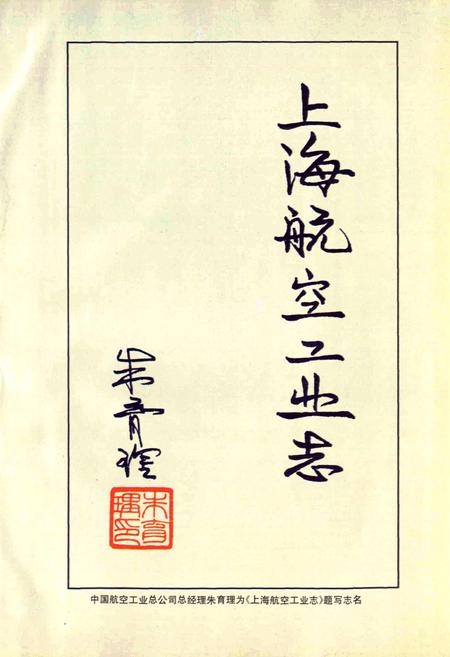 上海航空工业志
朱育理
朱育理印
中国航空工业总公司总经理朱育理为《上海航空工业志》题写志名